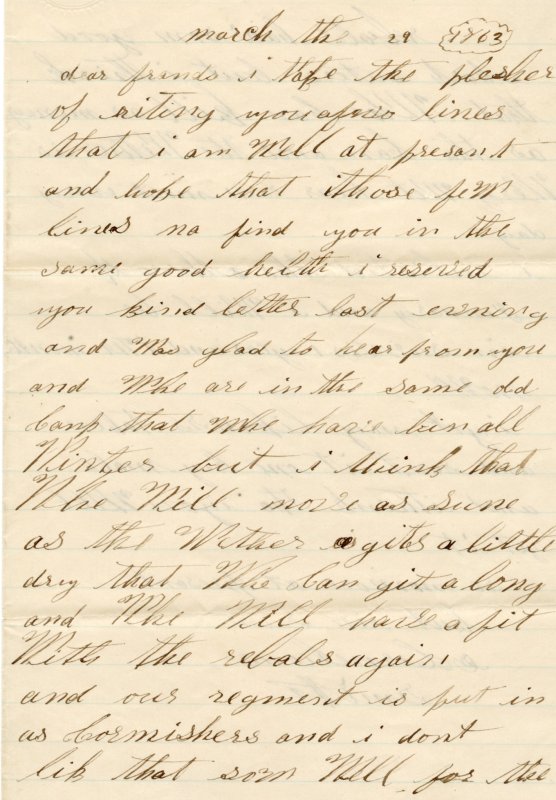 march the 29 1863
dear frends i take the plesher
of riting you a few lines
that i am Well at presant
and hope that those few
lines na find you in the
same good helth i reseved
you kind letter last evening
and Was glad to hear from you
and Whe are in the same old
Camp that Whe have bin all
Winter but i think that
Whe Will move as sune
as the Wether gits a little
dry that Whe Can git a long
and Whe Will have a fit
With the rebals again
and our regment is put in
as Cormishers and i dont
lik that som Well for the